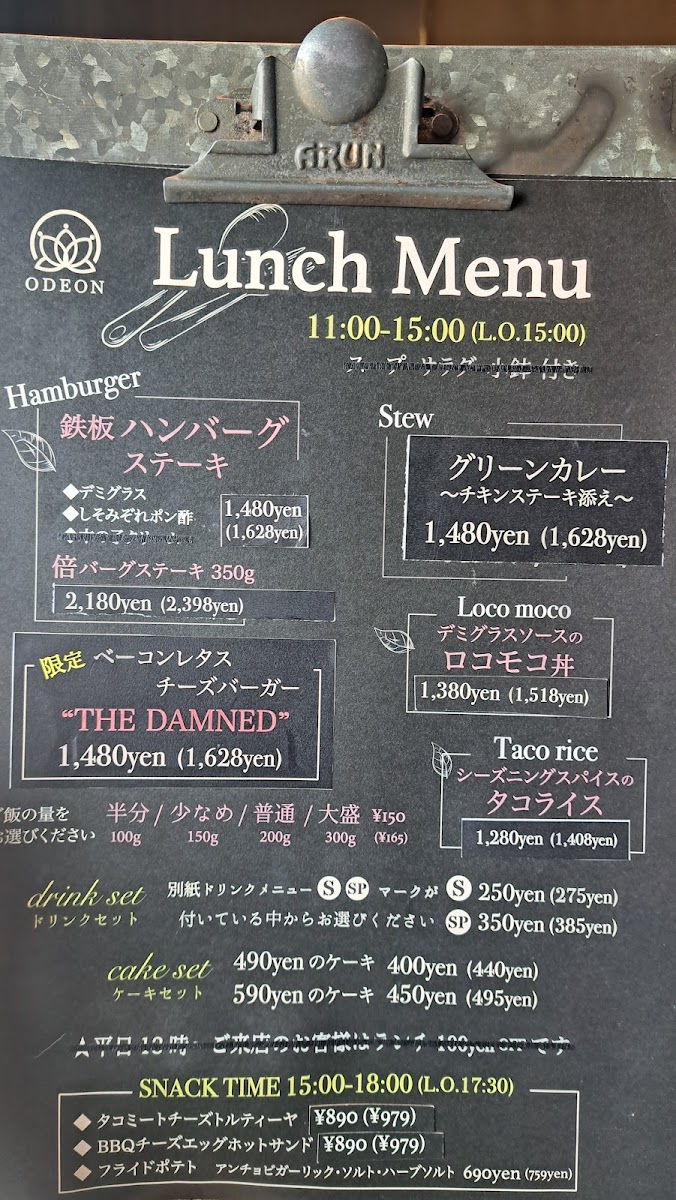 ARUN
ODEON
Lunch Menu
11:00-15:00 (L.O.15:00)
スープ・サラダ・小鉢 付き
Hamburger
鉄板 ハンバーグ
ステーキ
◆デミグラス
◆しそみぞれポン酢
1,480yen
(1,628yen)
倍バーグステーキ 350g
2,180yen (2,398yen)
Stew
グリーンカレー
～チキンステーキ添え～
1,480yen (1,628yen)
Loco moco
デミグラスソースの
ロコモコ丼
1,380yen (1,518yen)
限定 ベーコンレタス
チーズバーガー
“THE DAMNED”
1,480yen (1,628yen)
Taco rice
シーズニングスパイスの
タコライス
1,280yen (1,408yen)
ご飯の量を
お選びください
半分 / 少なめ / 普通 / 大盛 ¥150
100g 150g 200g 300g (¥165)
drink set
ドリンクセット
別紙ドリンクメニュー S SP マークが
付いている中からお選びください
S 250yen (275yen)
SP 350yen (385yen)
cake set
ケーキセット
490yen のケーキ 400yen (440yen)
590yen のケーキ 450yen (495yen)
★平日 13時 ご来店のお客様はランチ 100yen です
SNACK TIME 15:00-18:00 (L.O.17:30)
◆ タコミートチーズトルティーヤ ¥890 (¥979)
◆ BBQチーズエッグホットサンド ¥890 (¥979)
◆ フライドポテト アンチョビガーリック・ソルト・ハーブソルト 690yen (759yen)